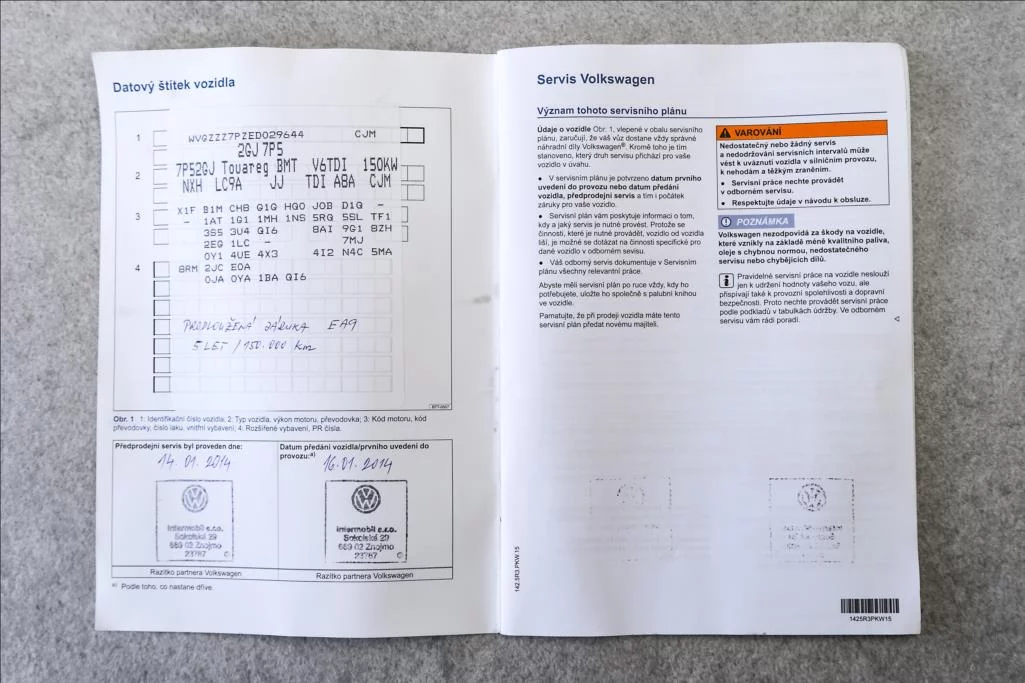 Datový štítek vozidla
1
WVGZZZ7PZED029644 CJM
2GJ 7P5
2
7P52GJ Touareg BMT V6TDI 150KW
NXH LC9A JJ TDI A8A CJM
3
X1F B1M CHB Q1G HGO JOB D1Q -
- 1AT 1G1 1MH 1NS 5RQ 5SL TF1
3S5 3U4 QI6 8AI 9G1 8ZH
2EG 1LC - 7MJ
0Y1 4UE 4X3 4I2 N4C 5MA
4
8RM 2JC E0A
0JA 0YA 1BA QI6
PRODLOUŽENÁ ZÁRUKA EA9
5 LET / 150.000 km
Obr. 1 1: Identifikační číslo vozidla; 2: Typ vozidla, výkon motoru, převodovka; 3: Kód motoru, kód
převodovky, číslo laku, vnitřní vybavení; 4: Rozšířené vybavení, PR čísla.
Předprodejní servis byl proveden dne:
14. 01. 2014
Intermobil s.r.o.
Sokolská 29
669 02 Znojmo
23787
Razítko partnera Volkswagen
Datum předání vozidla/prvního uvedení do
provozu:a)
16.01. 2014
Intermobil s.r.o.
Sokolská 29
669 02 Znojmo
23787
Razítko partnera Volkswagen
a) Podle toho, co nastane dříve.
Servis Volkswagen
Význam tohoto servisního plánu
Údaje o vozidle Obr. 1, vlepené v obalu servisního
plánu, zaručují, že váš vůz dostane vždy správné
náhradní díly Volkswagen®. Kromě toho je tím
stanoveno, který druh servisu přichází pro vaše
vozidlo v úvahu.
• V servisním plánu je potvrzeno datum prvního
uvedení do provozu nebo datum předání
vozidla, předprodejní servis a tím i počátek
záruky pro vaše vozidlo.
• Servisní plán vám poskytuje informaci o tom,
kdy a jaký servis je nutné provést. Protože se
činnosti, které je nutné provádět, vozidlo od vozidla
liší, je možné se dotázat na činnosti specifické pro
dané vozidlo v odborném servisu.
• Váš odborný servis dokumentuje v Servisním
plánu všechny relevantní práce.
Abyste měli servisní plán po ruce vždy, kdy ho
potřebujete, uložte ho společně s palubní knihou
ve vozidle.
Pamatujte, že při prodeji vozidla máte tento
servisní plán předat novému majiteli.
VAROVÁNÍ
Nedostatečný nebo žádný servis
a nedodržování servisních intervalů může
vést k uváznutí vozidla v silničním provozu,
k nehodám a těžkým zraněním.
• Servisní práce nechte provádět
v odborném servisu.
• Respektujte údaje v návodu k obsluze.
POZNÁMKA
Volkswagen nezodpovídá za škody na vozidle,
které vznikly na základě méně kvalitního paliva,
oleje s chybnou normou, nedostatečného
servisu nebo chybějících dílů.
Pravidelné servisní práce na vozidle neslouží
jen k udržení hodnoty vašeho vozu, ale
přispívají také k provozní spolehlivosti a dopravní
bezpečnosti. Proto nechte provádět servisní práce
podle podkladů v tabulkách údržby. Ve odborném
servisu vám rádi poradí.
142.5R3.PKW.15
1425R3PKW15